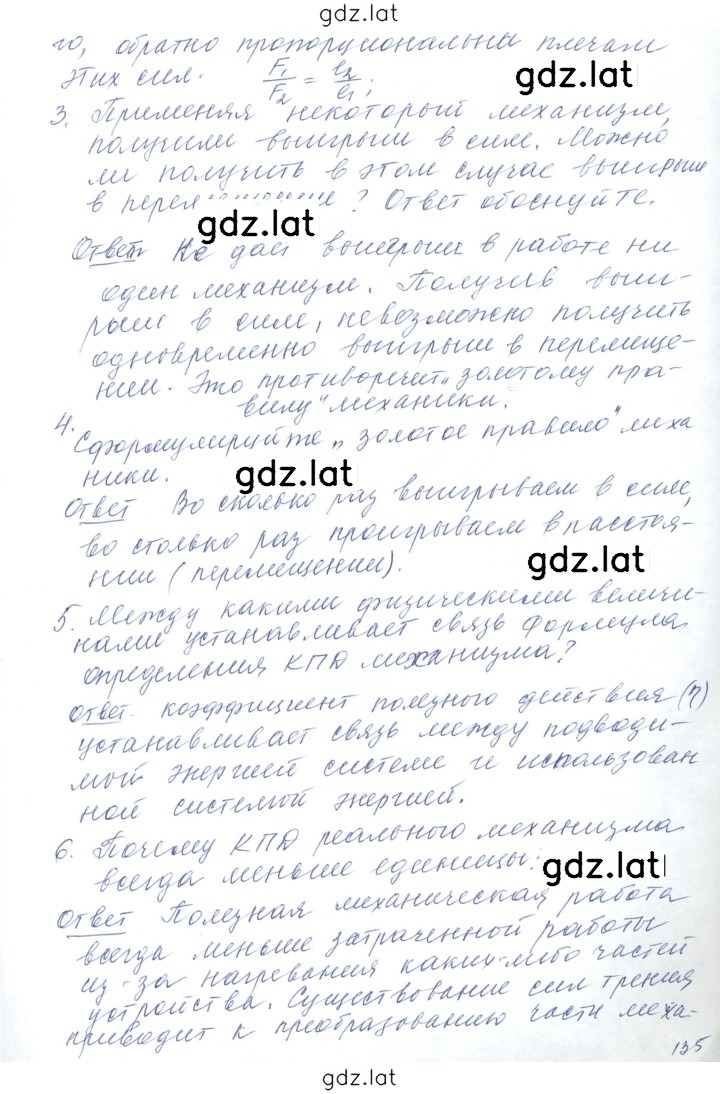 gdz.lat
го, обратно пропорциональны плечам
этих сил. F₁/F₂ = l₂/l₁;
3. Применяя некоторый механизм,
получили выигрыш в силе. Можно
ли получить в этом случае выигрыш
в перемещении? Ответ обоснуйте.
gdz.lat
Ответ Не дает выигрыш в работе ни
один механизм. Получив выиг-
рыш в силе, невозможно получить
одновременно выигрыш в перемеще-
нии. Это противоречит „золотому пра-
вилу" механики.
4.
Сформулируйте „золотое правило" меха
ники.
gdz.lat
Ответ Во сколько раз выигрываем в силе,
во столько раз проигрываем в расстоя-
нии (перемещении).
gdz.lat
5. Между какими физическими величи-
нами устанавливает связь формула
определения КПД механизма?
Ответ. коэффициент полезного действия (η)
устанавливает связь между подводи-
мой энергией системе и использован
ной системой энергией.
6. Почему КПД реального механизма
всегда меньше единицы?
gdz.lat
Ответ Полезная механическая работа
всегда меньше затраченной работы
из-за нагревания каких-либо частей
устройства. Существование сил трения
приводит к преобразованию части меха-
135
gdz.lat